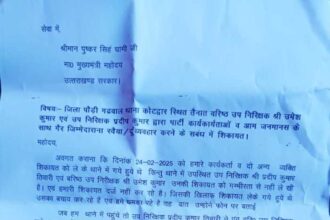 सेवा में,
श्रीमान पुष्कर सिंह धामी जी
मा0 मुख्यमंत्री महोदय
उत्तराखण्ड सरकार।
विषय:- जिला पौडी गढवाल थाना कोटद्वार स्थित तैनात वरिष्ठ उप निरिक्षक श्री उमेश
कुमार एवं उप निरिक्षक प्रदीप कुमार द्वारा पार्टी कार्यकार्ताओं व आम जनमानस के
साथ गैर जिम्मेदाराना रवैया/दुव्यवहार करने के संबंध में शिकायत।
महोदय,
अवगत कराना कि दिनांक 24-02-2025 को हमारे कार्यकर्ता व दो अन्य व्यक्ति
शिकायत को ले के थाने में गये हुये थे किन्तु थाने में उपस्थित उप निरीक्षक श्री प्रदीप कुमार
एवं वरिष्ठ उप निरीक्षक उमेश कुमार उनकी शिकायत को गम्भीरता से नही ले रहे
थे। एवं हमारी शिकायत दर्ज नहीं कर रहे है। जिसकी खिलाफ शिकायत लेके गये हुये थे
उसका बचाव कर रहे है एवं हमे धमका रहे है उन्होंने फोन पर बताई
जब हम थाने में पहुंचे तो उप निरीक्षक प्रदीप कुमार